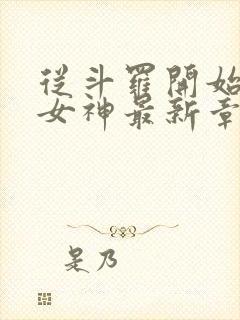 從斗羅開始
女神最新章
是乃